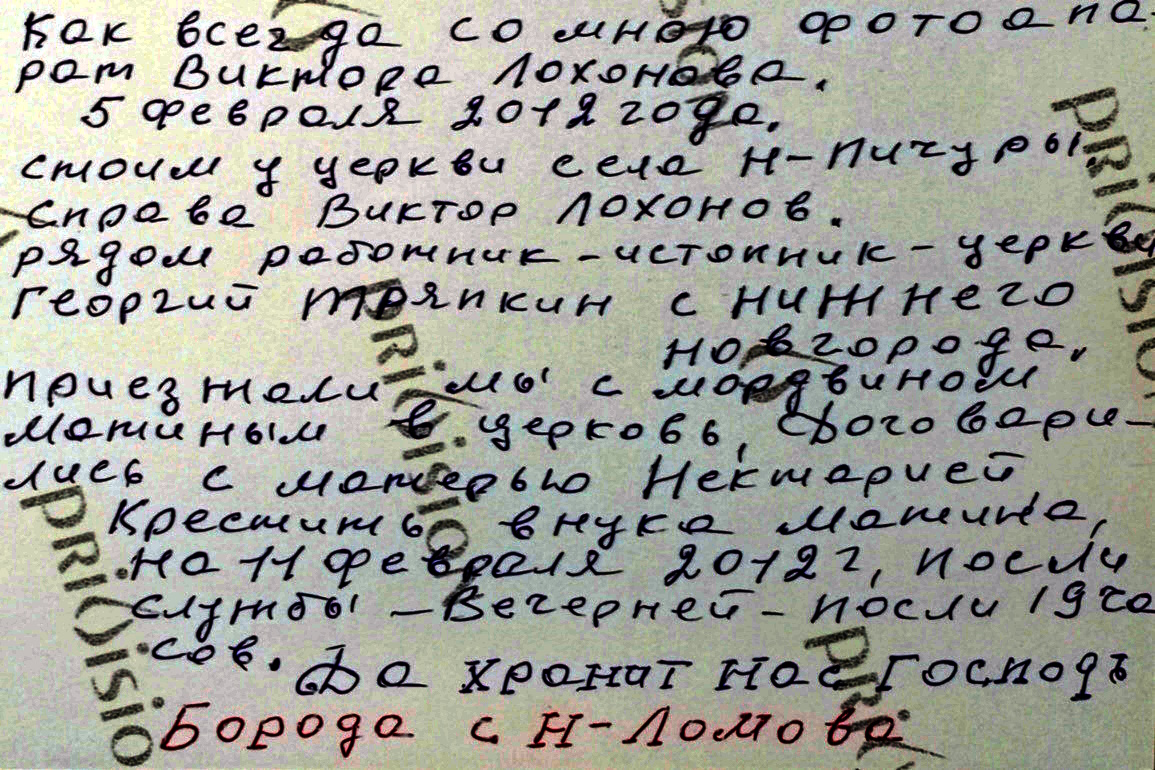 Как всегда со мною фотоапа-
рат Виктора Лохонова.
5 февраля 2012 года.
стоим у церкви села Н-Пичуры.
Справа Виктор Лохонов.
рядом работник-истопник-церкви
Георгий Тряпкин с нижнего
новгорода.
приезжали мы с мордвином
Матиным в церковь, Договари-
лись с матерью Нектарией
Крестить внука Матина,
на 11 февраля 2012 г, посли
службы - Вечерней - посли 19 ча
сов. Да хранит нас Господь
Борода с Н-Ломова